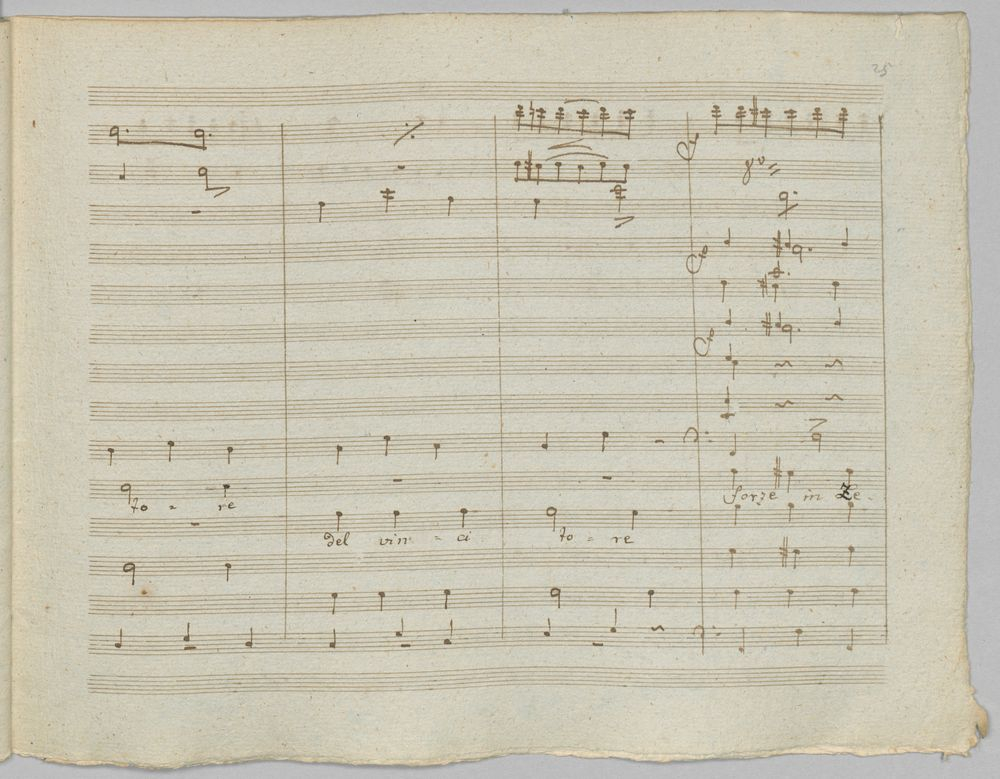 25
to = re
forze in Ze-
del vin = ci to = re